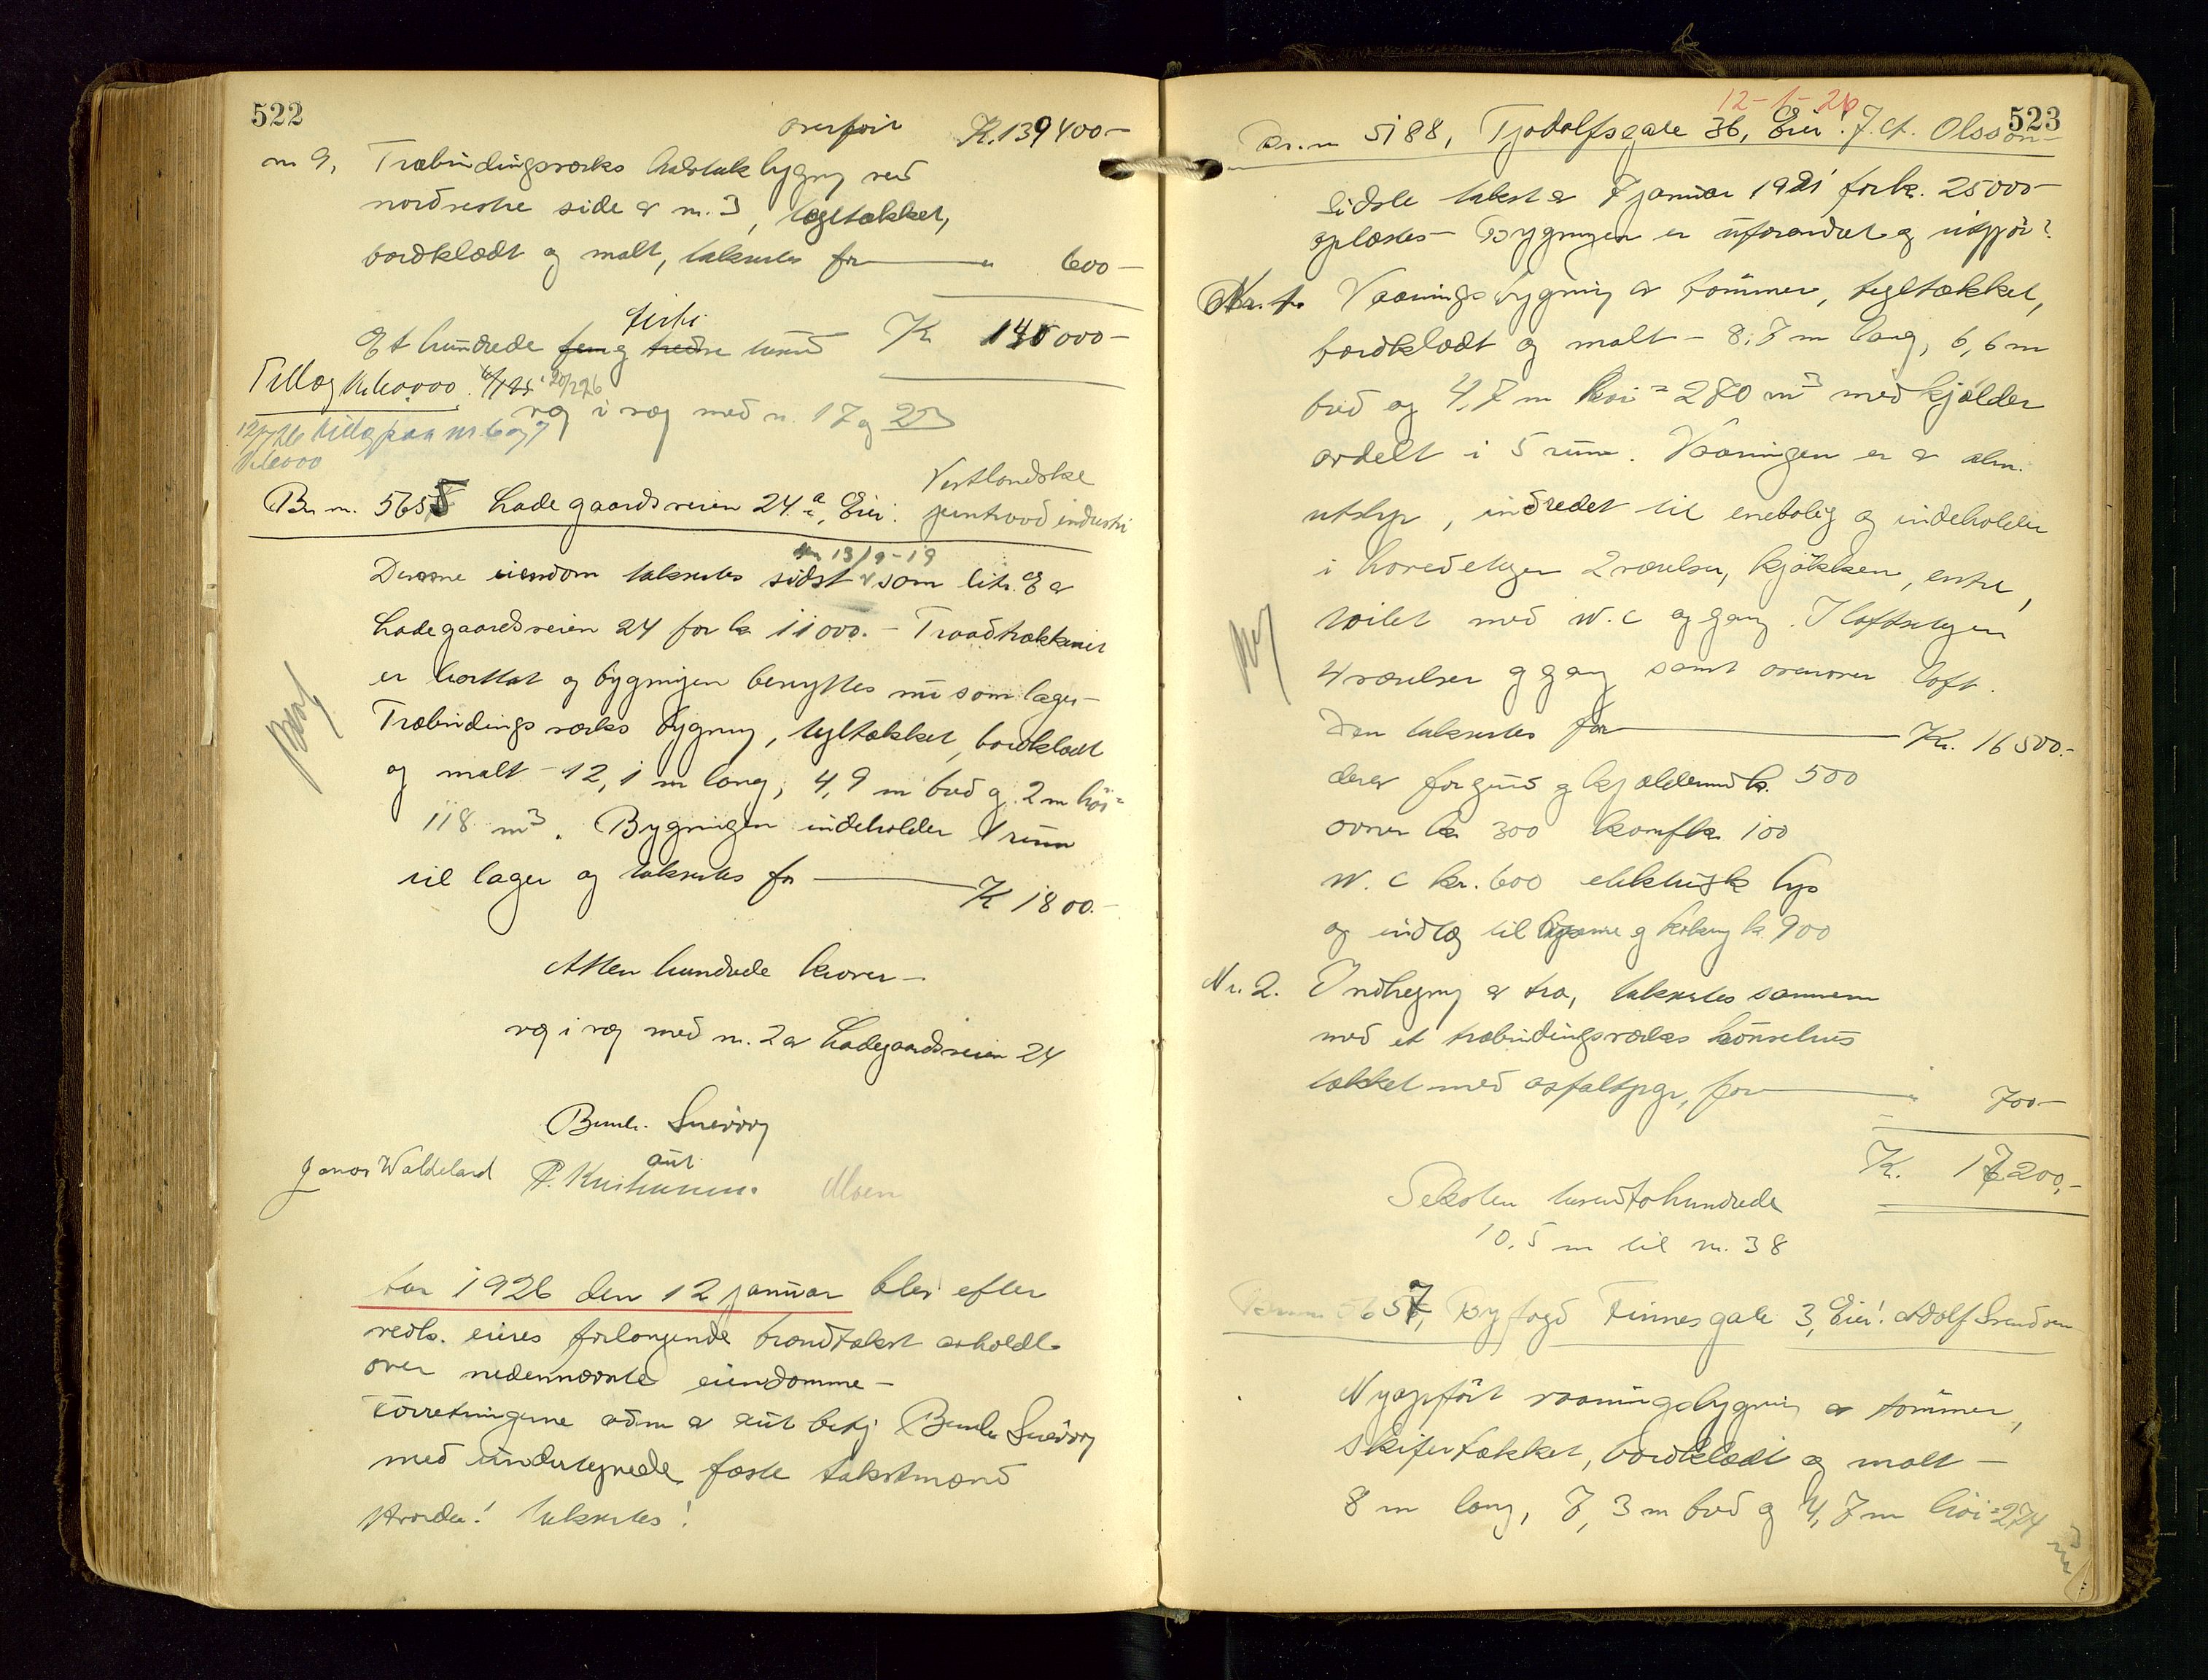 522
overført K. 139400-
nr 9, Træbindingsverks halvtak bygning ved
nordvestre side av nr. 3, tegltækket,
bordklædt og malt, takseres for — " 600-
førti
Et hundrede fem og tredve tusind K 140000-
Tillæg
væg i væg med nr. 17 og 25
12/7 26 tillæg paa nr 6 og 7
Br nr. 5655 Ladegaardsveien 24a, Eier: Vestlandske
industri
den 13/9-19
Denne eiendom taksertes sidst som litr. E av
Ladegaardsveien 24 for kr 11000.- Traadtrækkeriet
er borttat og bygningen benyttes nu som lager-
Træbindingsverks bygning, tegltækket, bordklædt
og malt - 12,1 m lang, 4,9 m bred og 2 m høi =
118 m3. Bygningen indeholder 1 rum
til lager og takseres for — K 1800.-
Atten hundrede kroner-
væg i væg med nr. 2 av Ladegaardsveien 24
Bernh. Sneivvy
aut.
Jonas Waldeland P. Kristiansen. Moen
Aar 1926 den 12 januar blev efter
vedk. eieres forlangende brandtakst avholdt
over nedennævnte eiendomme-
Forretningerne adm av aut betj Bernh Sneivvy
med undertegnede faste takstmænd
Hvorda! takseres!
523
12-1-26
Br. nr 5188, Tjodolfsgate 36, Eier: J. A. Olsson-
Sidste takst av 7 januar 1921 for kr. 25000-
oplæstes- Bygningen er uforandret og utgjør:
Nr. 1. Vaaningsbygning av tømmer, tegltækket,
bordklædt og malt - 8,7 m lang, 6,6 m
bred og 4,7 m høi = 280 m3 med kjælder
avdelt i 5 rum. Vaaningen er av alm.
utstyr, indredet til enebolig og indeholder
i hovedetagen 2 værelser, kjøkken, entre,
toilet med W.C og gang. I loftsetagen
4 værelser og gang samt ovenover loft.
Den takseres for — Kr. 16500.-
derav for grund og kjældermur kr. 500
ovner kr 300 komf kr. 100
W.C kr. 600 elektrisk lys
og indlæg til lysarme og kokning kr 900
Nr. 2. Indhegning av træ, takseres sammen
med et træbindingsverks hønsehus
tækket med asfaltpap, for — " 700-
K. 17200,-
Seksten tusind to hundrede
10,5 m til nr. 38
Br nr 5657, Byfogd Finnesgate 3, Eier: Adolf Svendsen
Nyopført vaaningsbygning av tømmer,
skifertækket, bordklædt og malt-
8 m lang, 7,3 m bred og 4,7 m høi = 274
m3